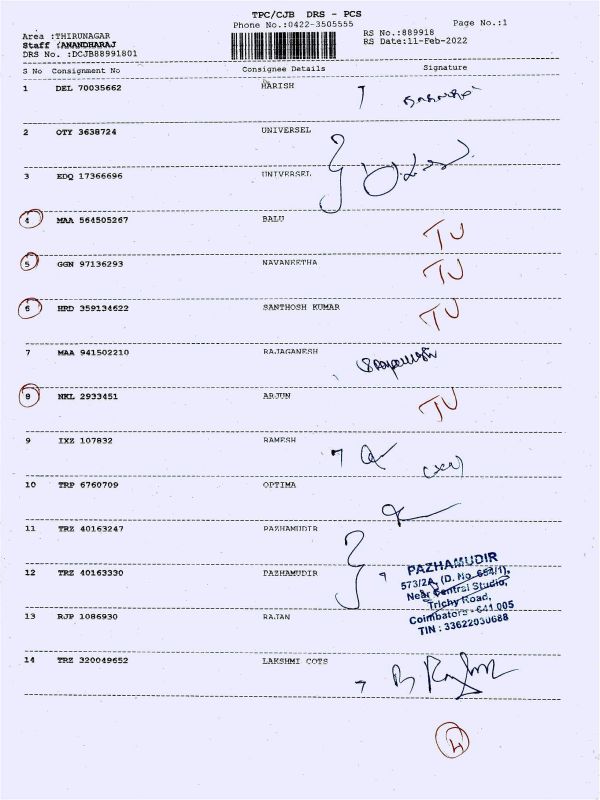 TPC/CJB DRS - PCS
Phone No.:0422-3505555 Page No.:1
Area :THIRUNAGAR RS No.:889918
Staff :ANANDHARAJ RS Date:11-Feb-2022
DRS No. :DCJB88991801
S No Consignment No Consignee Details Signature
1 DEL 70035662 HARISH
2 OTY 3638724 UNIVERSEL
3 EDQ 17366696 UNIVERSEL
4 MAA 564505267 BALU TU
5 GGN 97136293 NAVANEETHA TU
6 HRD 359134622 SANTHOSH KUMAR TU
7 MAA 941502210 RAJAGANESH
8 NKL 2933451 ARJUN TU
9 IXZ 107832 RAMESH
10 TRP 6760709 OPTIMA
11 TRZ 40163247 PAZHAMUDIR
12 TRZ 40163330 PAZHAMUDIR
PAZHAMUDIR
573/2A, (D. No. 654/1),
Near Central Studio,
Trichy Road,
Coimbatore - 641 005
TIN : 33622030688
13 RJP 1086930 RAJAN
14 TRZ 320049652 LAKSHMI COTS
4